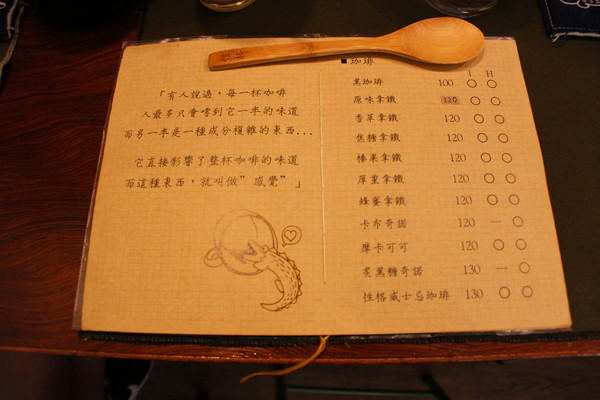 「有人說過，每一杯咖啡
人最多只會嚐到它一半的味道
而另一半是一種成分複雜的東西...
它直接影響了整杯咖啡的味道
而這種東西，就叫做”感覺”」
■咖啡
I H
黑咖啡 100 ○ ○
原味拿鐵 120 ○ ○
香草拿鐵 120 ○ ○
焦糖拿鐵 120 ○ ○
榛果拿鐵 120 ○ ○
厚重拿鐵 120 ○ ○
蜂蜜拿鐵 120 ○ ○
卡布奇諾 120 — ○
摩卡可可 120 ○ ○
炙黑糖奇諾 130 — ○
性格威士忌咖啡 130 ○ ○